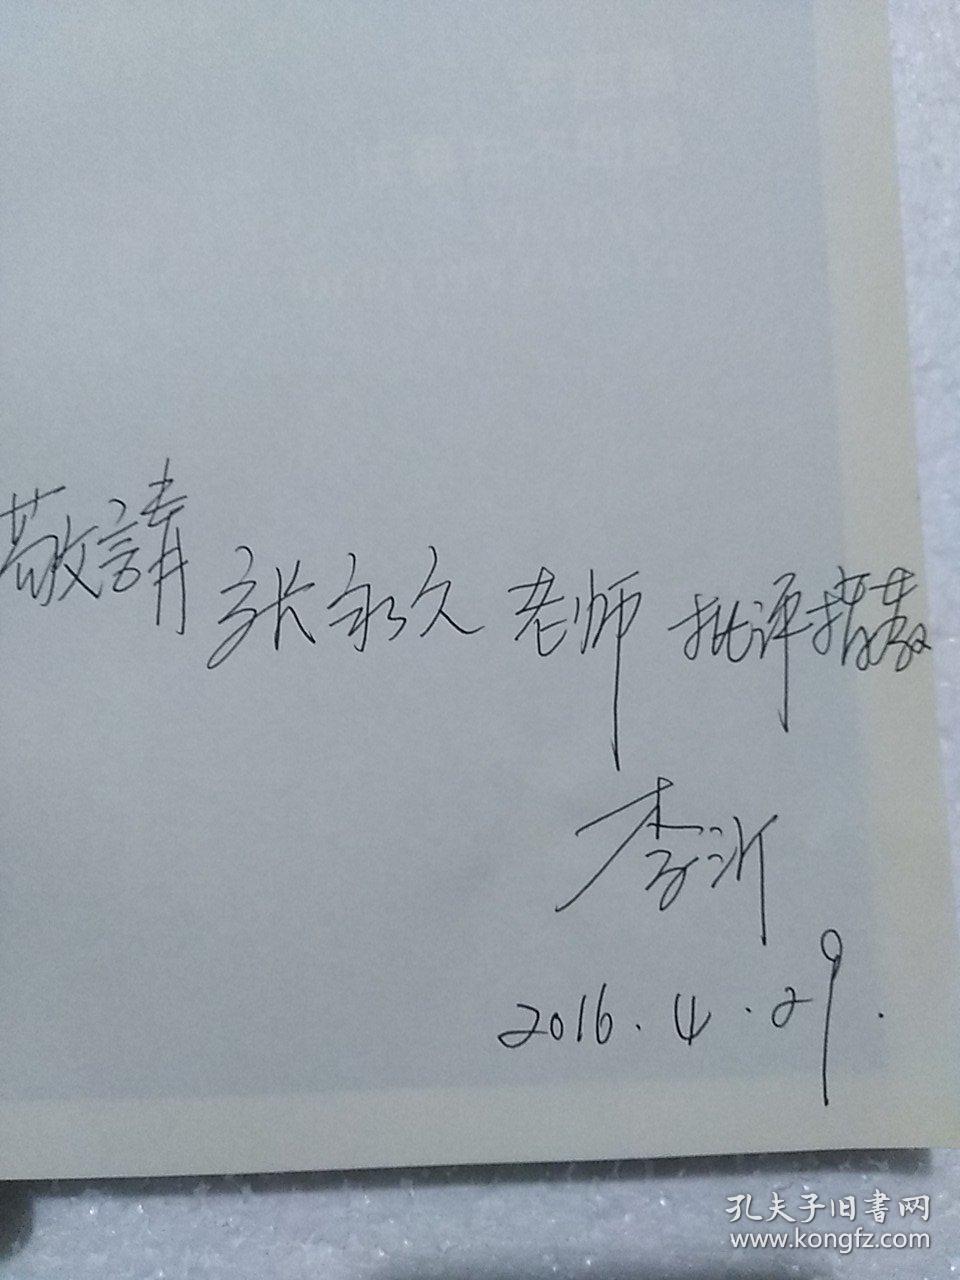 敬請 张永久 老师 批评指教
李沂
2016.4.29.
孔夫子旧書网
www.kongfz.com